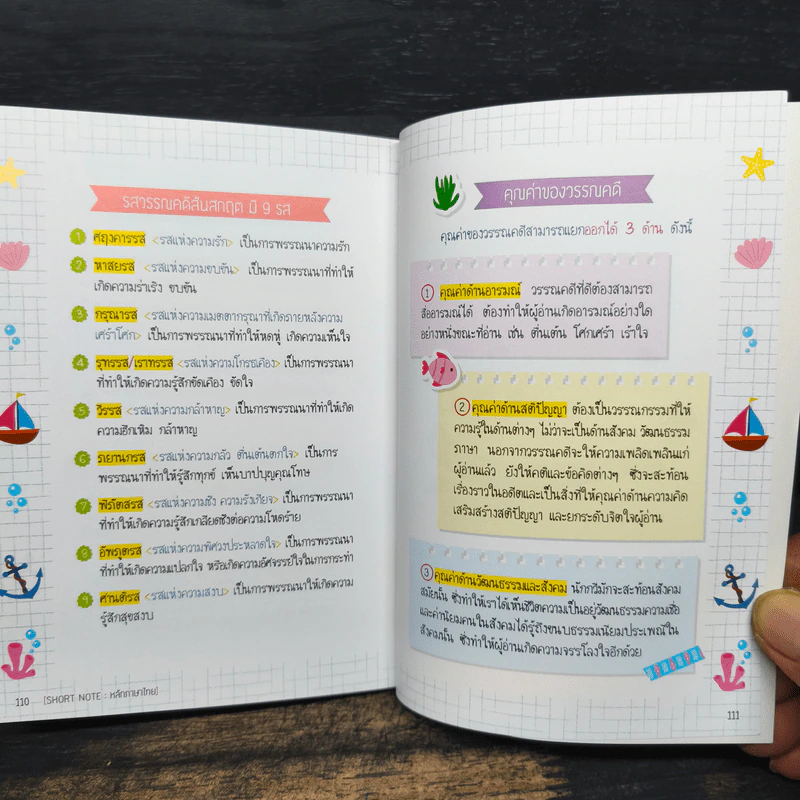 รสวรรณคดีสันสกฤต มี 9 รส
1 ศฤงคารรส <รสแห่งความรัก> เป็นการพรรณนาความรัก
2 หาสยรส <รสแห่งความขบขัน> เป็นการพรรณนาที่ทำให้
เกิดความร่าเริง ขบขัน
3 กรุณารส <รสแห่งความเมตตากรุณาที่เกิดภายหลังความ
เศร้าโศก> เป็นการพรรณนาที่ทำให้หดหู่ เกิดความเห็นใจ
4 รุทรรส/เราทรรส <รสแห่งความโกรธเคือง> เป็นการพรรณนา
ที่ทำให้เกิดความรู้สึกขัดเคือง ขัดใจ
5 วีรรส <รสแห่งความกล้าหาญ> เป็นการพรรณนาที่ทำให้เกิด
ความฮึกเหิม กล้าหาญ
6 ภยานกรส <รสแห่งความกลัว ตื่นเต้นตกใจ> เป็นการ
พรรณนาที่ทำให้รู้สึกทุกข์ เห็นบาปบุญคุณโทษ
7 พีภัตสรส <รสแห่งความชัง ความรังเกียจ> เป็นการพรรณนา
ที่ทำให้เกิดความรู้สึกเกลียดชังต่อความโหดร้าย
8 อัพภูตรส <รสแห่งความพิศวงประหลาดใจ> เป็นการพรรณนา
ที่ทำให้เกิดความแปลกใจ หรือเกิดความอัศจรรย์ใจในการกระทำ
9 ศานติรส <รสแห่งความสงบ> เป็นการพรรณนาให้เกิดความ
รู้สึกสุขสงบ
110 [SHORT NOTE : หลักภาษาไทย]
คุณค่าของวรรณคดี
คุณค่าของวรรณคดีสามารถแยกออกได้ 3 ด้าน ดังนี้
1 คุณค่าด้านอารมณ์ วรรณคดีที่ดีต้องสามารถ
สื่ออารมณ์ได้ ต้องทำให้ผู้อ่านเกิดอารมณ์อย่างใด
อย่างหนึ่งขณะที่อ่าน เช่น ตื่นเต้น โศกเศร้า เร้าใจ
2 คุณค่าด้านสติปัญญา ต้องเป็นวรรณกรรมที่ให้
ความรู้ในด้านต่างๆ ไม่ว่าจะเป็นด้านสังคม วัฒนธรรม
ภาษา นอกจากวรรณคดีจะให้ความเพลิดเพลินแก่
ผู้อ่านแล้ว ยังให้คติและข้อคิดต่างๆ ซึ่งจะสะท้อน
เรื่องราวในอดีตและเป็นสิ่งที่ให้คุณค่าด้านความคิด
เสริมสร้างสติปัญญา และยกระดับจิตใจผู้อ่าน
3 คุณค่าด้านวัฒนธรรมและสังคม นักกวีมักจะสะท้อนสังคม
สมัยนั้น ซึ่งทำให้เราได้เห็นชีวิตความเป็นอยู่วัฒนธรรมความเชื่อ
และค่านิยมคนในสังคมได้รู้ถึงขนบธรรมเนียมประเพณีใน
สังคมนั้น ซึ่งทำให้ผู้อ่านเกิดความจรรโลงใจอีกด้วย
111